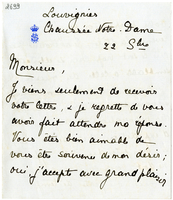 2699
Louvignies
Chaussée Notre-Dame
22 8bre
Monsieur,
Je viens seulement de recevoir
votre lettre, & je regrette de vous
avoir fait attendre ma réponse.
Vous êtes bien aimable de
vous être souvenu de mon désir;
oui j'accepte avec grand plaisir